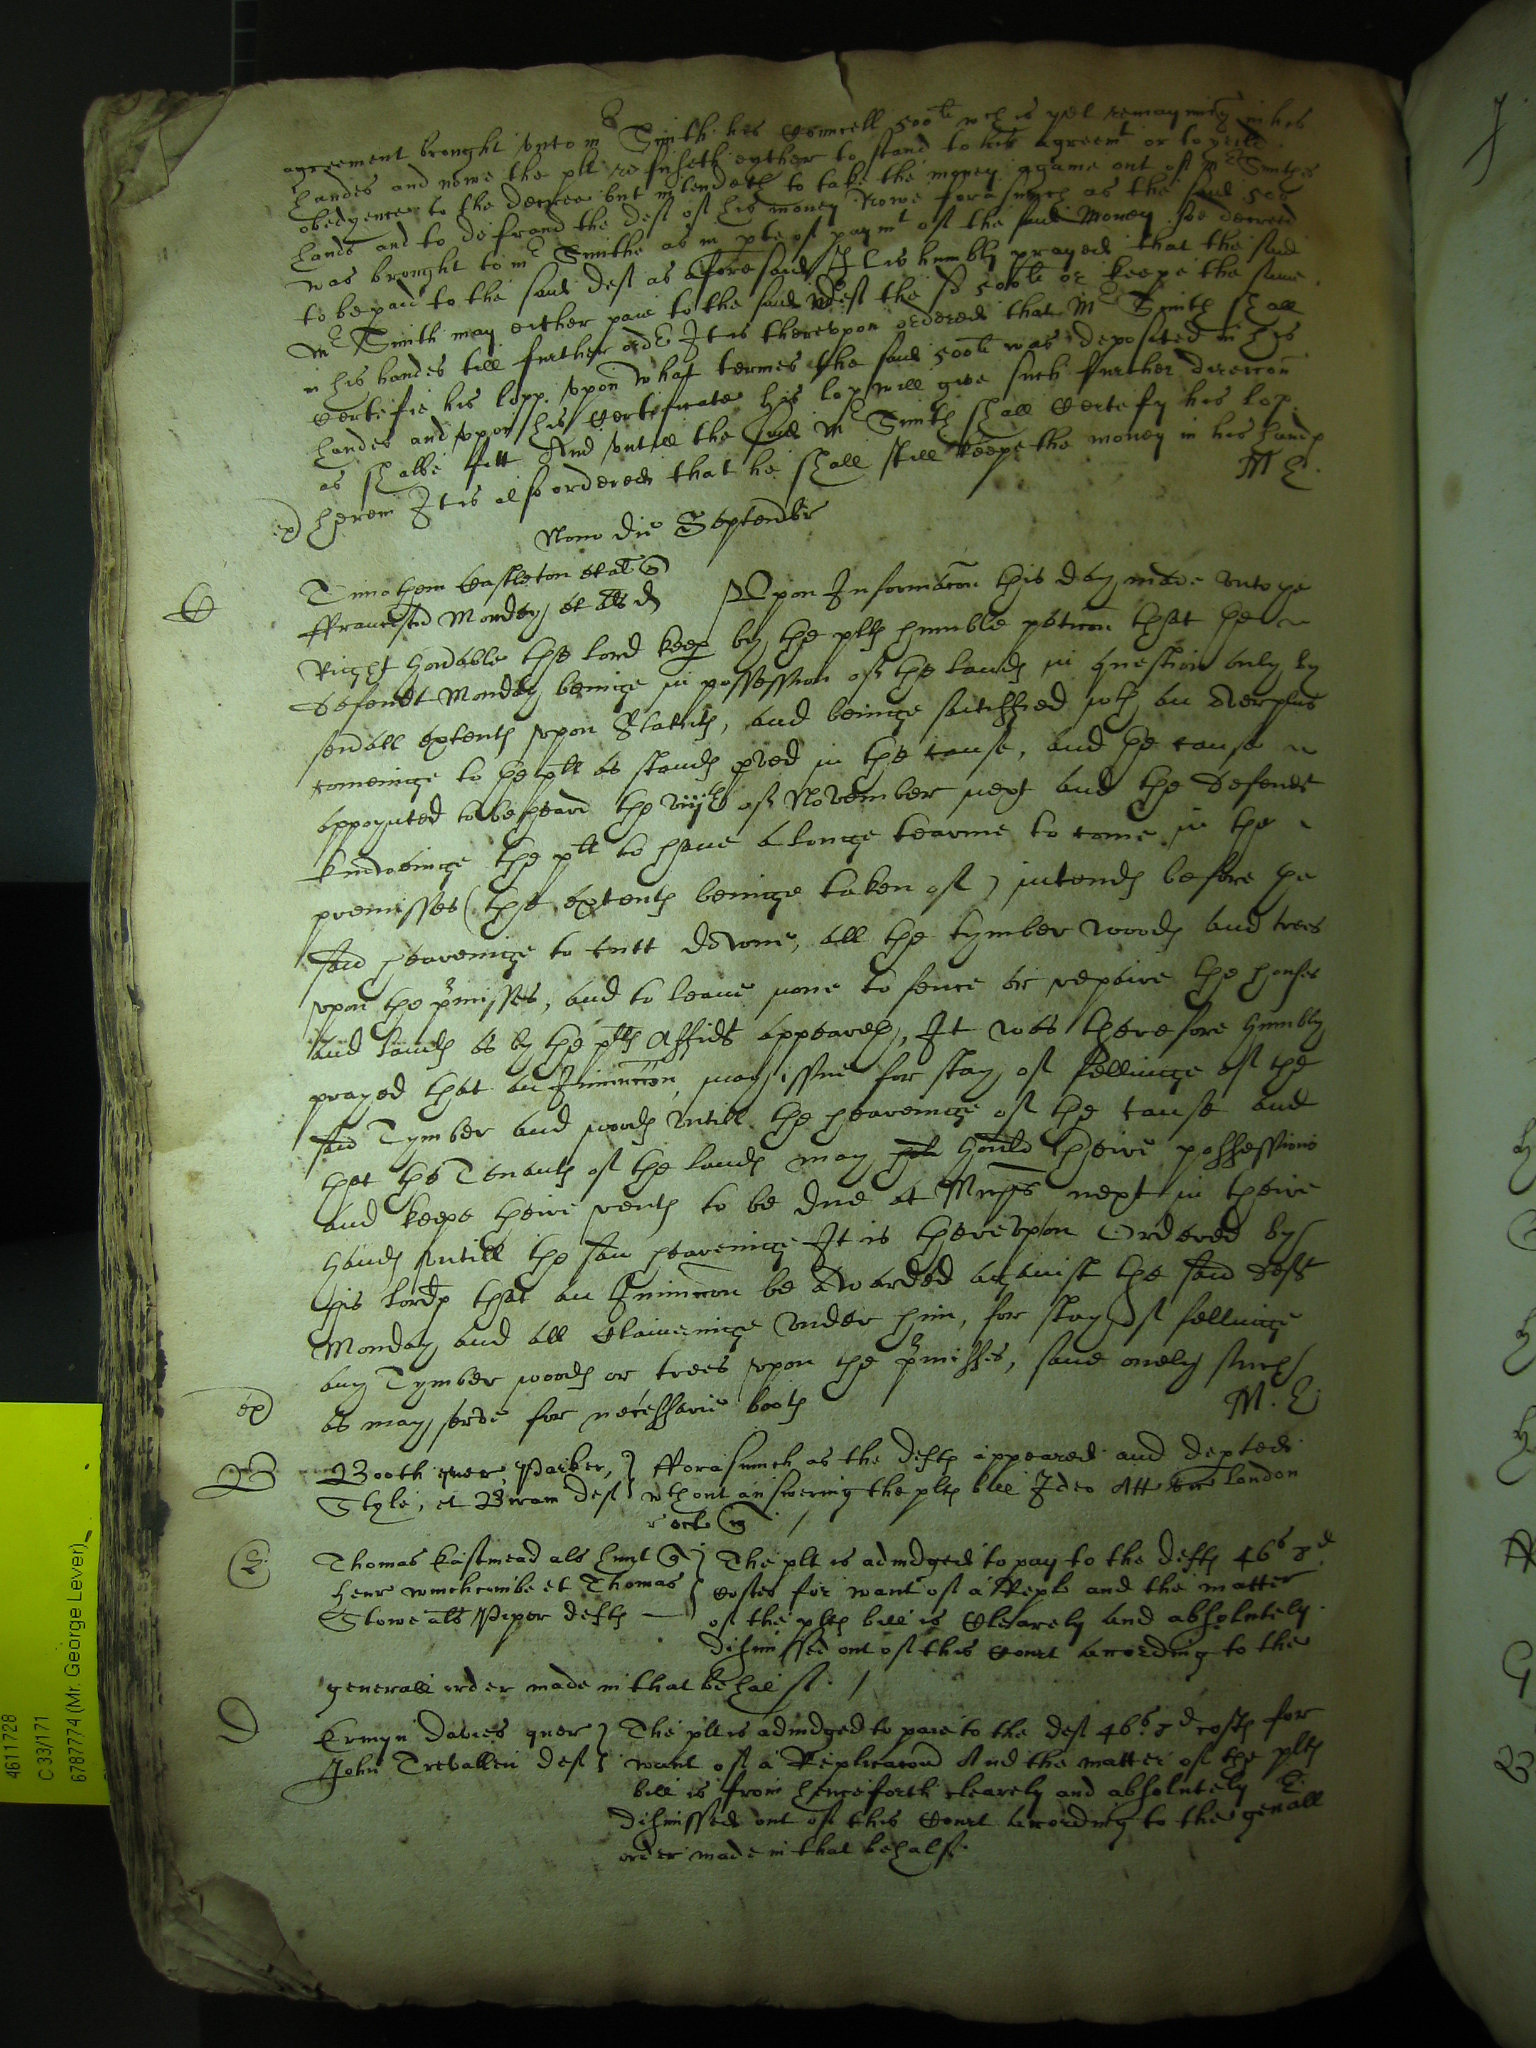 agreement brought vnto mr Smith his Councell 500li wch is yet remayninge in his
handes and nowe the plt refuseth eyther to stand to his agreemt or to yeild
obedyence to the decree but intendeth to take the money againe out of Mr Smithes
hands and to defraud the deft of his money Nowe forasmuch as the said 500
was brought to mr Smithe as in pte of paymt of the said money soe decreed
to be paid to the said deft as aforesaid It is humbly prayed that the said
Mr Smith may either paie to the said deft the sd 500li or keepe the same
in his handes till further ordr It is therevpon ordered that Mr Smith shall
Certefie his lopp. vpon what termes the said 500li was deposited in his
handes and vpon his Certificate his lop will give such further direccon
as shalbe fitt And vntill the said Mr Smith shall Certefy his lop
herein It is also ordered that he shall still keepe the money in his hands
M E.
Nono die Septembr
C
Timothem Castleton et al
ffranciscu Monday et als d
Vpon Informacon this day made vnto ye
Right Honable the lord keep by the plts humble peticon that the
defendt Monday beinge in possession of the lands in question only by
seuall extents vpon Statuts, and beinge sattisfied wth an overplus
comeinge to the plt as stands pved in the cause, and the cause
appoynted to be heard the viijth of November next and the defendt
knoweinge the plt to have a longe tearme to come in the
premisses (the extents beinge taken of) intends before the
said heareinge to cutt downe, all the tymber woods and trees
vpon the pmisses, and to leave none to fence or repaire the houses
and lands as by the plts Affidt appeareth, It was therefore humbly
prayed that an Iniunccon may issue for stay of fellinge of the
said Tymber and woods vntill the heareinge of the cause and
that the Tenants of the lands may hould theire possessions
and keepe theire rents to be due at Michs next in theire
hands vntill the said heareinge It is therevpon Ordered by
his lordp that an Iniuncon be awarded against the said deft
Monday and all Claimeinge vnder him, for stay of fellinge
any Tymber woods or trees vpon the pmisses, save onely such
as may serve for necessarie boots
M. E
B
Booth quer, Parker,
Style, et Biram deft
fforasmuch as the defts appeared and depted
wthout answering the plts bill Ideo Att London
E
Thomas Eastmead als hunt
henr winchcombe et Thomas
Stowe als Piper defts
The plt is adiudged to pay to the defts 46s 8d
Costes for want of a Repl and the matter
of the plts bill is Clearely and absolutely
dismissed out of this Court according to the
generall order made in that behalf.
D
Ermyn Davies quer
John Trevallen deft
The plt is adiudged to paie to the deft 46s 8d costs for
want of a Replicacion And the matter of the plts
bill is from henceforth clearely and absolutely
dismissed out of this Court according to the genall
order made in that behalf.
4611728
C 33/171
6787774 (Mr. George Lever)